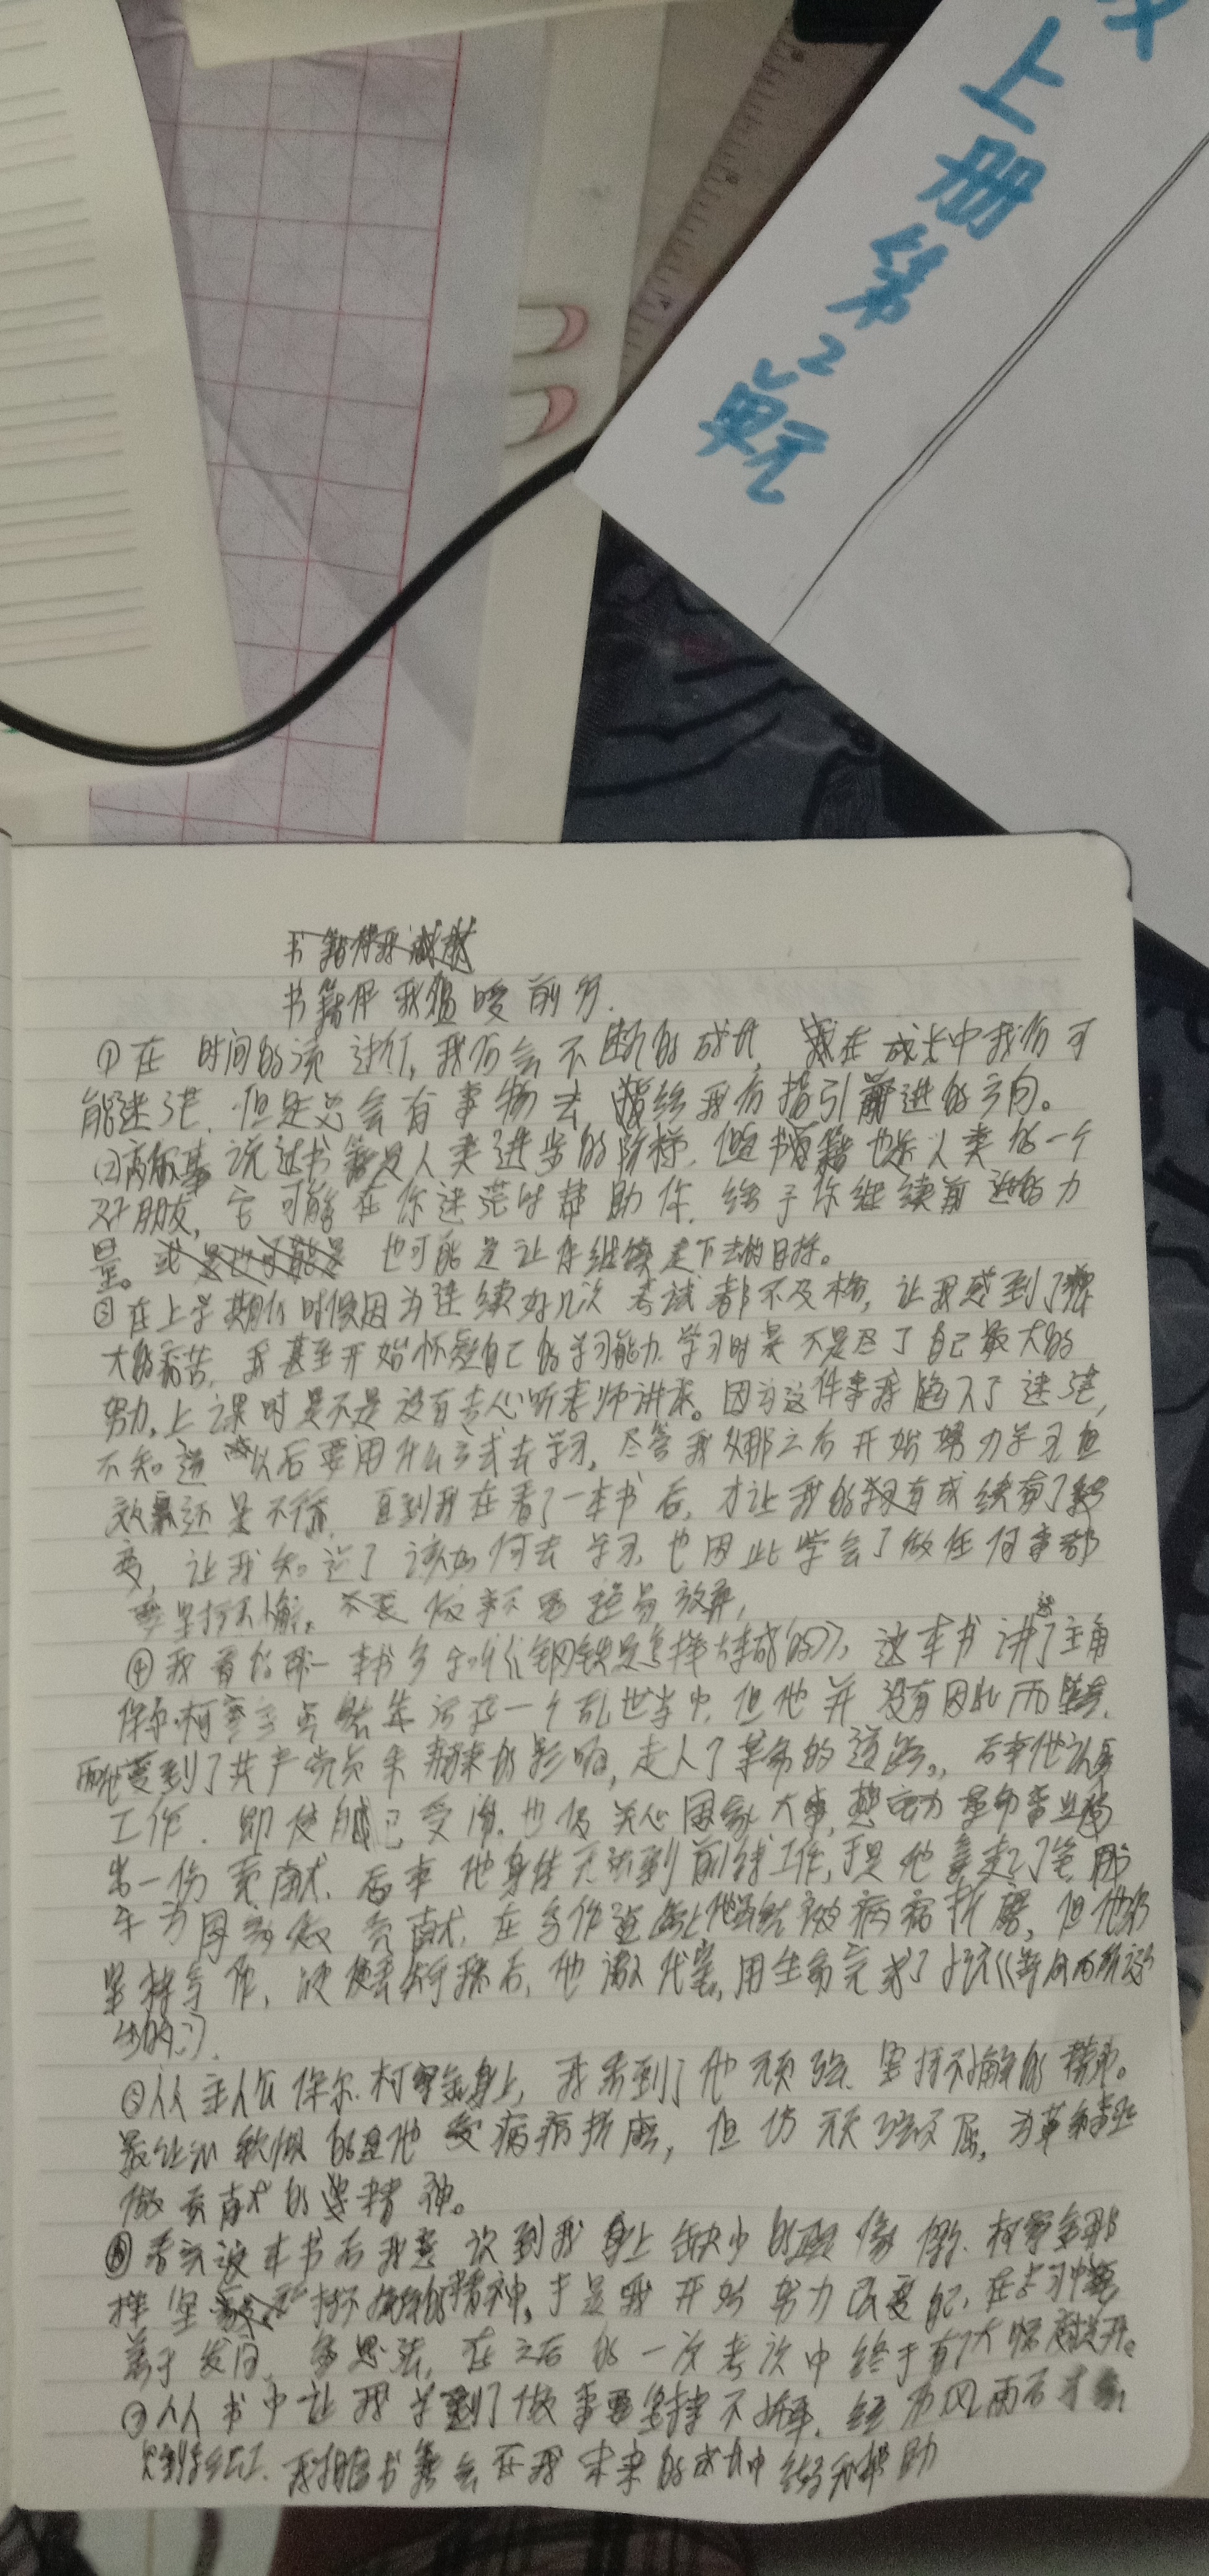 上册第2单元
书籍伴我温暖前方.
①在时间的流逝中,我们会不断的成长,在成长中我们可
能迷茫,但是总会有事物去给我们指引前进的方向。
②高尔基说过书籍是人类进步的阶梯,但书籍也是人类的一个
好朋友,它可能在你迷茫时帮助你,给予你继续前进的力
量。也可能是让你继续走下去的目标。
③在上学期的时候因为连续好几次考试都不及格,让我感到了
大的痛苦,我甚至开始怀疑自己的学习能力,学习时是不是尽了自己最大的
努力,上课时是不是没有专心听老师讲课。因为这件事我陷入了迷茫,
不知道以后要用什么方式去学习,尽管我从那之后开始努力学习但
效果还是不行,直到我在看了一本书后,才让我的成绩有了
变,让我知道了该如何去学习,也因此学会了做任何事都
要坚持不懈。不要做事不要轻易放弃,
④我看的那一本书名叫《钢铁是怎样炼成的》,这本书讲述了主角
保尔·柯察金生活在一个乱世当中,但他并没有因此而
他受到了共产党员朱赫来的影响,走入了革命的道路。后来他认真
工作,即使自己受伤,也仍关心国家大事,想为革命事业做
出一份贡献,后来他身体无法到前线工作,于是他拿起了笔
为国家做贡献,在写作道路上他虽然被病痛折磨,但他仍
坚持写作,他用生命完成了《暴风雨所诞
生的》.
⑤从主人公保尔·柯察金身上,我看到了他顽强、坚持不懈的精神。
最让我敬佩的是他受病痛折磨,但仍顽强不屈,为革命事业
做贡献的精神。
⑥看完这本书后我意识到我身上缺少的是像保尔·柯察金那
样坚持不懈的精神,于是我开始努力改变自己,在学习中
善于发问,多思考,在之后的一次考试中终于有了大幅提升。
⑦从书中让我学到了做事要坚持不懈,经历风雨后才
见到彩虹,我相信书籍会在我未来的成长中给予我帮助